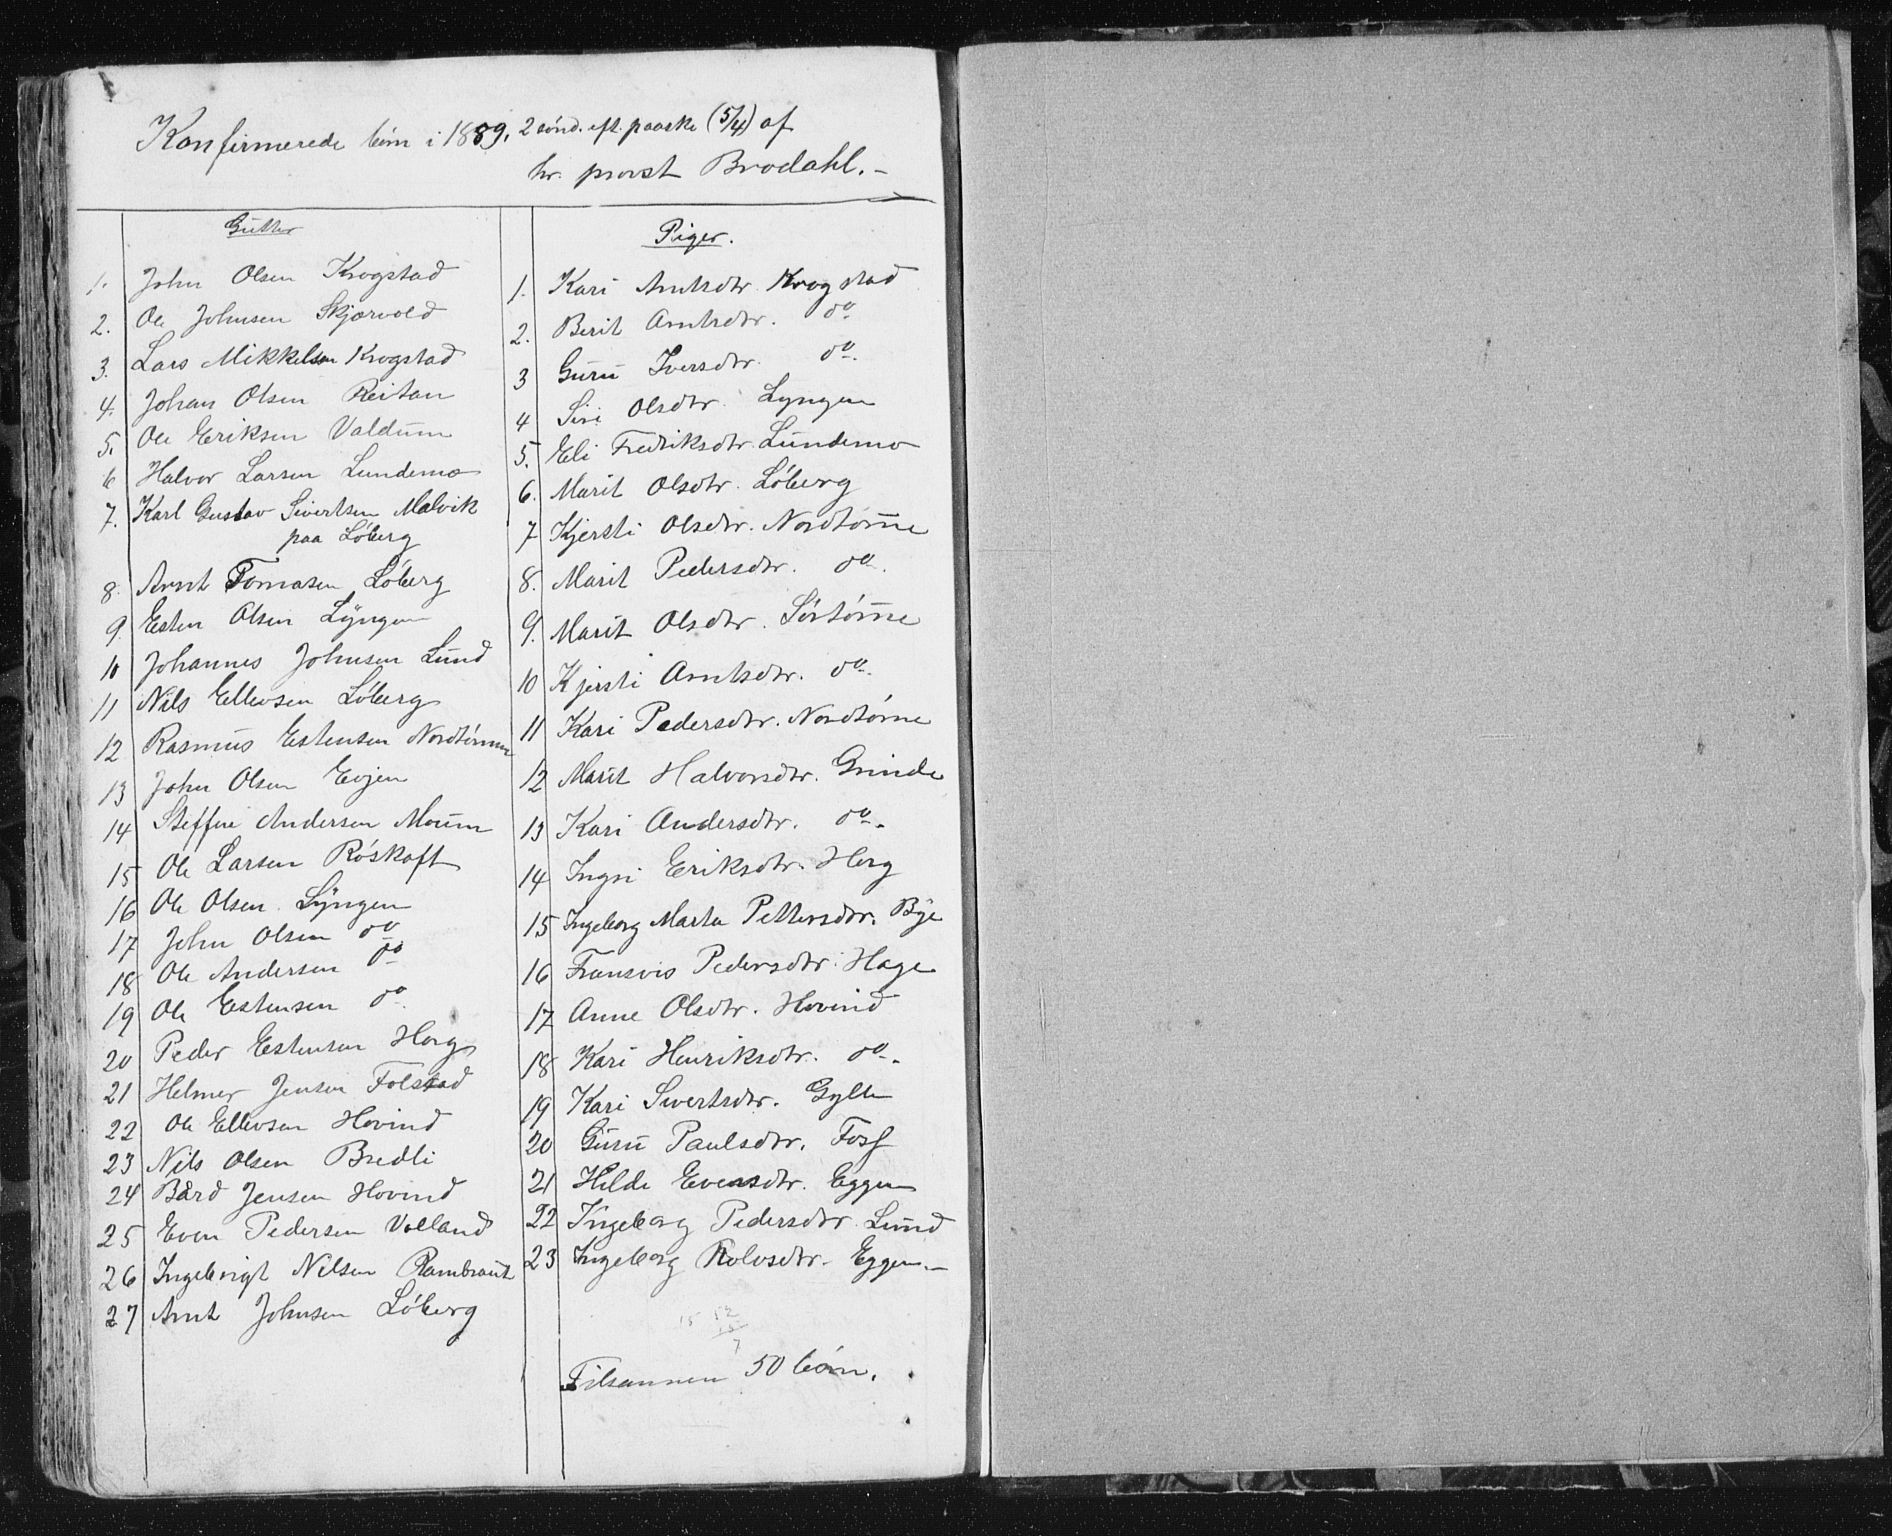 Konfirmerede börn i 1889, 2 sönd. eft. paaske (5/4) af
hr. provst Brodahl. -
Gutter
1. John Olsen Krogstad
2. Ole Johnsen Skjærvold
3. Lars Mikkelsen Krogstad
4. Johan Olsen Reitan
5. Ole Eriksen Valdum
6 Halvor Larsen Lundemo
7. Karl Gustav Sivertsen Malvik
paa Löberg
8. Arnt Tomasen Löberg
9. Esten Olsen Lyngen
10 Johannes Johnsen Lund
11 Nils Ellevsen Löberg
12 Rasmus Estensen Nordtömme
13 John Olsen Evjen
14 Steffen Andersen Moum
15 Ole Larsen Röskaft
16 Ole Olsen Lyngen
17 John Olsen do
18 Ole Andersen do
19 Ole Estensen do
20 Peder Estensen Horg
21 Helmer Jensen Folstad
22 Ole Ellevsen Hovind
23 Nils Olsen Bredli
24 Bård Jensen Hovind
25 Even Pedersen Volland
26 Ingebrigt Nilsen Rambraut
27 Arnt Johnsen Löberg
Piger.
1. Kari Arntsdtr. Krogstad
2. Berit Arntsdtr. do
3 Guru Iversdtr. do.
4 Siri Olsdtr. Lyngen
5. Eli Fredriksdtr. Lundemo
6. Marit Olsdtr. Löberg
7 Kjersti Olsdtr. Nordtöm̅e
8. Marit Pedersdtr. do.
9. Marit Olsdtr. Sörtöm̅e
10 Kjersti Arntsdtr. do.
11 Kari Pedersdtr. Nordtöm̅e
12 Marit Halvorsdtr. Grinde
13 Kari Andersdtr. do.
14 Ingri Eriksdtr. Horg
15 Ingeborg Marta Pettersdtr. Bye
16 Fransvis Pedersdtr. Hage
17 Anne Olsdtr. Hovind
18 Kari Henriksdtr. do.
19 Kari Sivertsdtr. Gylle
20 Guru Paulsdtr. Foss
21 Hilde Evensdtr. Eggen
22 Ingeborg Pedersdtr. Lund
23 Ingeborg Rolvsdtr. Eggen. -
Tilsammen 50 börn.